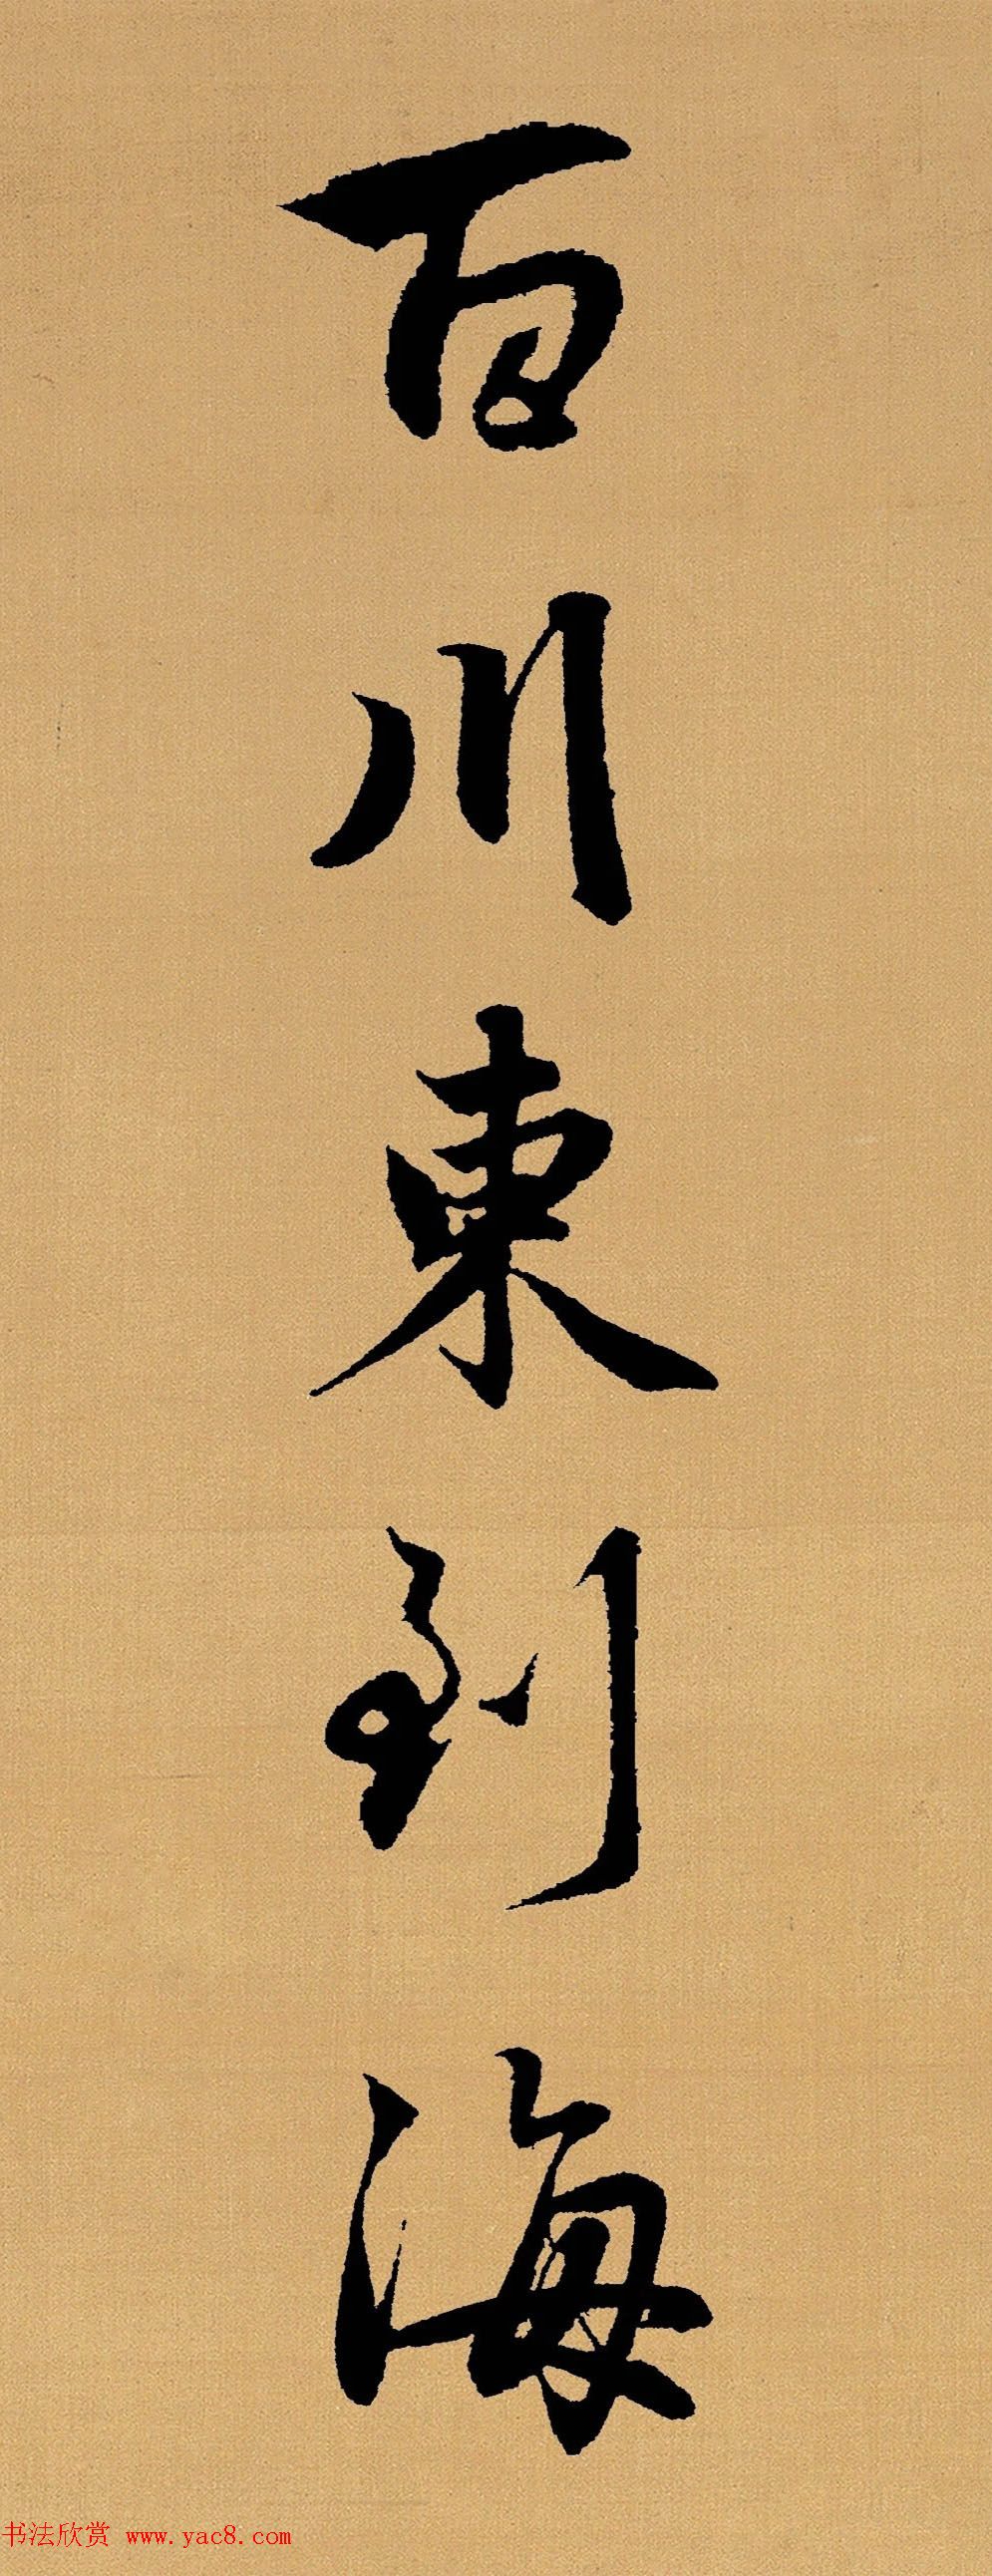 百川東到海
书法欣赏 www.yac8.com